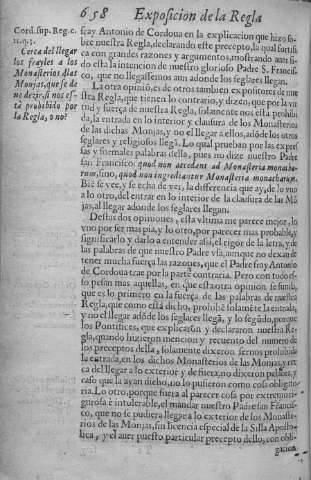 658 Exposicion de la Regla
Cord. sup. Reg. c.
11. q. 5.
Cerca del llegar
los frayles a los
Monasterios de las
Monjas, que se de
ue dezir, si nos es-
tà prohibido por
la Regla, o no?
fray Antonio de Cordoua en la explicacion que hizo so-
bre nuestra Regla, declarando este precepto, la qual fortifi
ca con grandes razones y argumentos, mostrando auer si-
do esta la intencion de nuestro glorioso Padre S. Francis-
co, que no llegassemos aun adonde los seglares llegan.
La otra opinió, es de otros tambien expositores de nue
stra Regla, que tienen lo contrario, y dizen, que por la vir
tud y fuerça de nuestra Regla, solamente nos està prohibi
da, la entrada en lo interior y clausura de los Monasterios
de las dichas Monjas, y no el llegar a ellos, adóde los otros
seglares y religiosos llegã. Lo qual prueban por las expres
sas y formales palabras della, pues no dize nuestro Padre
san Francisco, quod non accedant ad Monasteria monacha-
rum, sino, quod non ingrediantur Monasteria monacharum.
Biẽ se vee, y se echa de ver, la differencia que ay, de lo vno
a lo otro, del entrar en lo interior de la clausura de las Mõ
jas, al llegar adonde los seglares llegan.
Destas dos opiniones, esta vltima me parece mejor, lo
vno por ser mas pia, y lo otro, por parecer mas probable, y
significarlo y darlo a entender assi, el rigor de la letra, y de
las palabras de que nuestro Padre vsa, aunque no dexan de
tener mucha fuerça las razones, que el Padre fray Antonio
de Cordoua trae por la parte contraria. Pero con todo es-
so pesan mas aquellas, en que esta otra opinion se funda,
que es lo primero en la fuerça de las palabras de nuestra
Regla, que como està dicho, prohibe solamẽte la entrada,
y no el llegar adõde los seglares llegã, y lo segũdo, porque
los Pontifices, que explicaron y declararon nuestra Re-
gla, quando hizieron mencion y recuento del numero de
los preceptos della, solamente dixeron sernos prohibida
la entrada, en los dichos Monasterios de las Monjas, y cer
ca del llegar a lo exterior y de fuera, no dixeron palabra, y
caso que la ayan dicho, no lo pusieron como cosa obligato
ria. Lo otro, porque fuera al parecer cosa por extremo ri-
gurosa è intolerable, el mandar nuestro Padre san Francis-
co, que no se pudiera llegar a lo exterior de los Monaste-
rios de las Monjas, sin licencia especial de la Silla Aposto-
lica, y el auer puesto particular precepto dello, con obli-
gacion